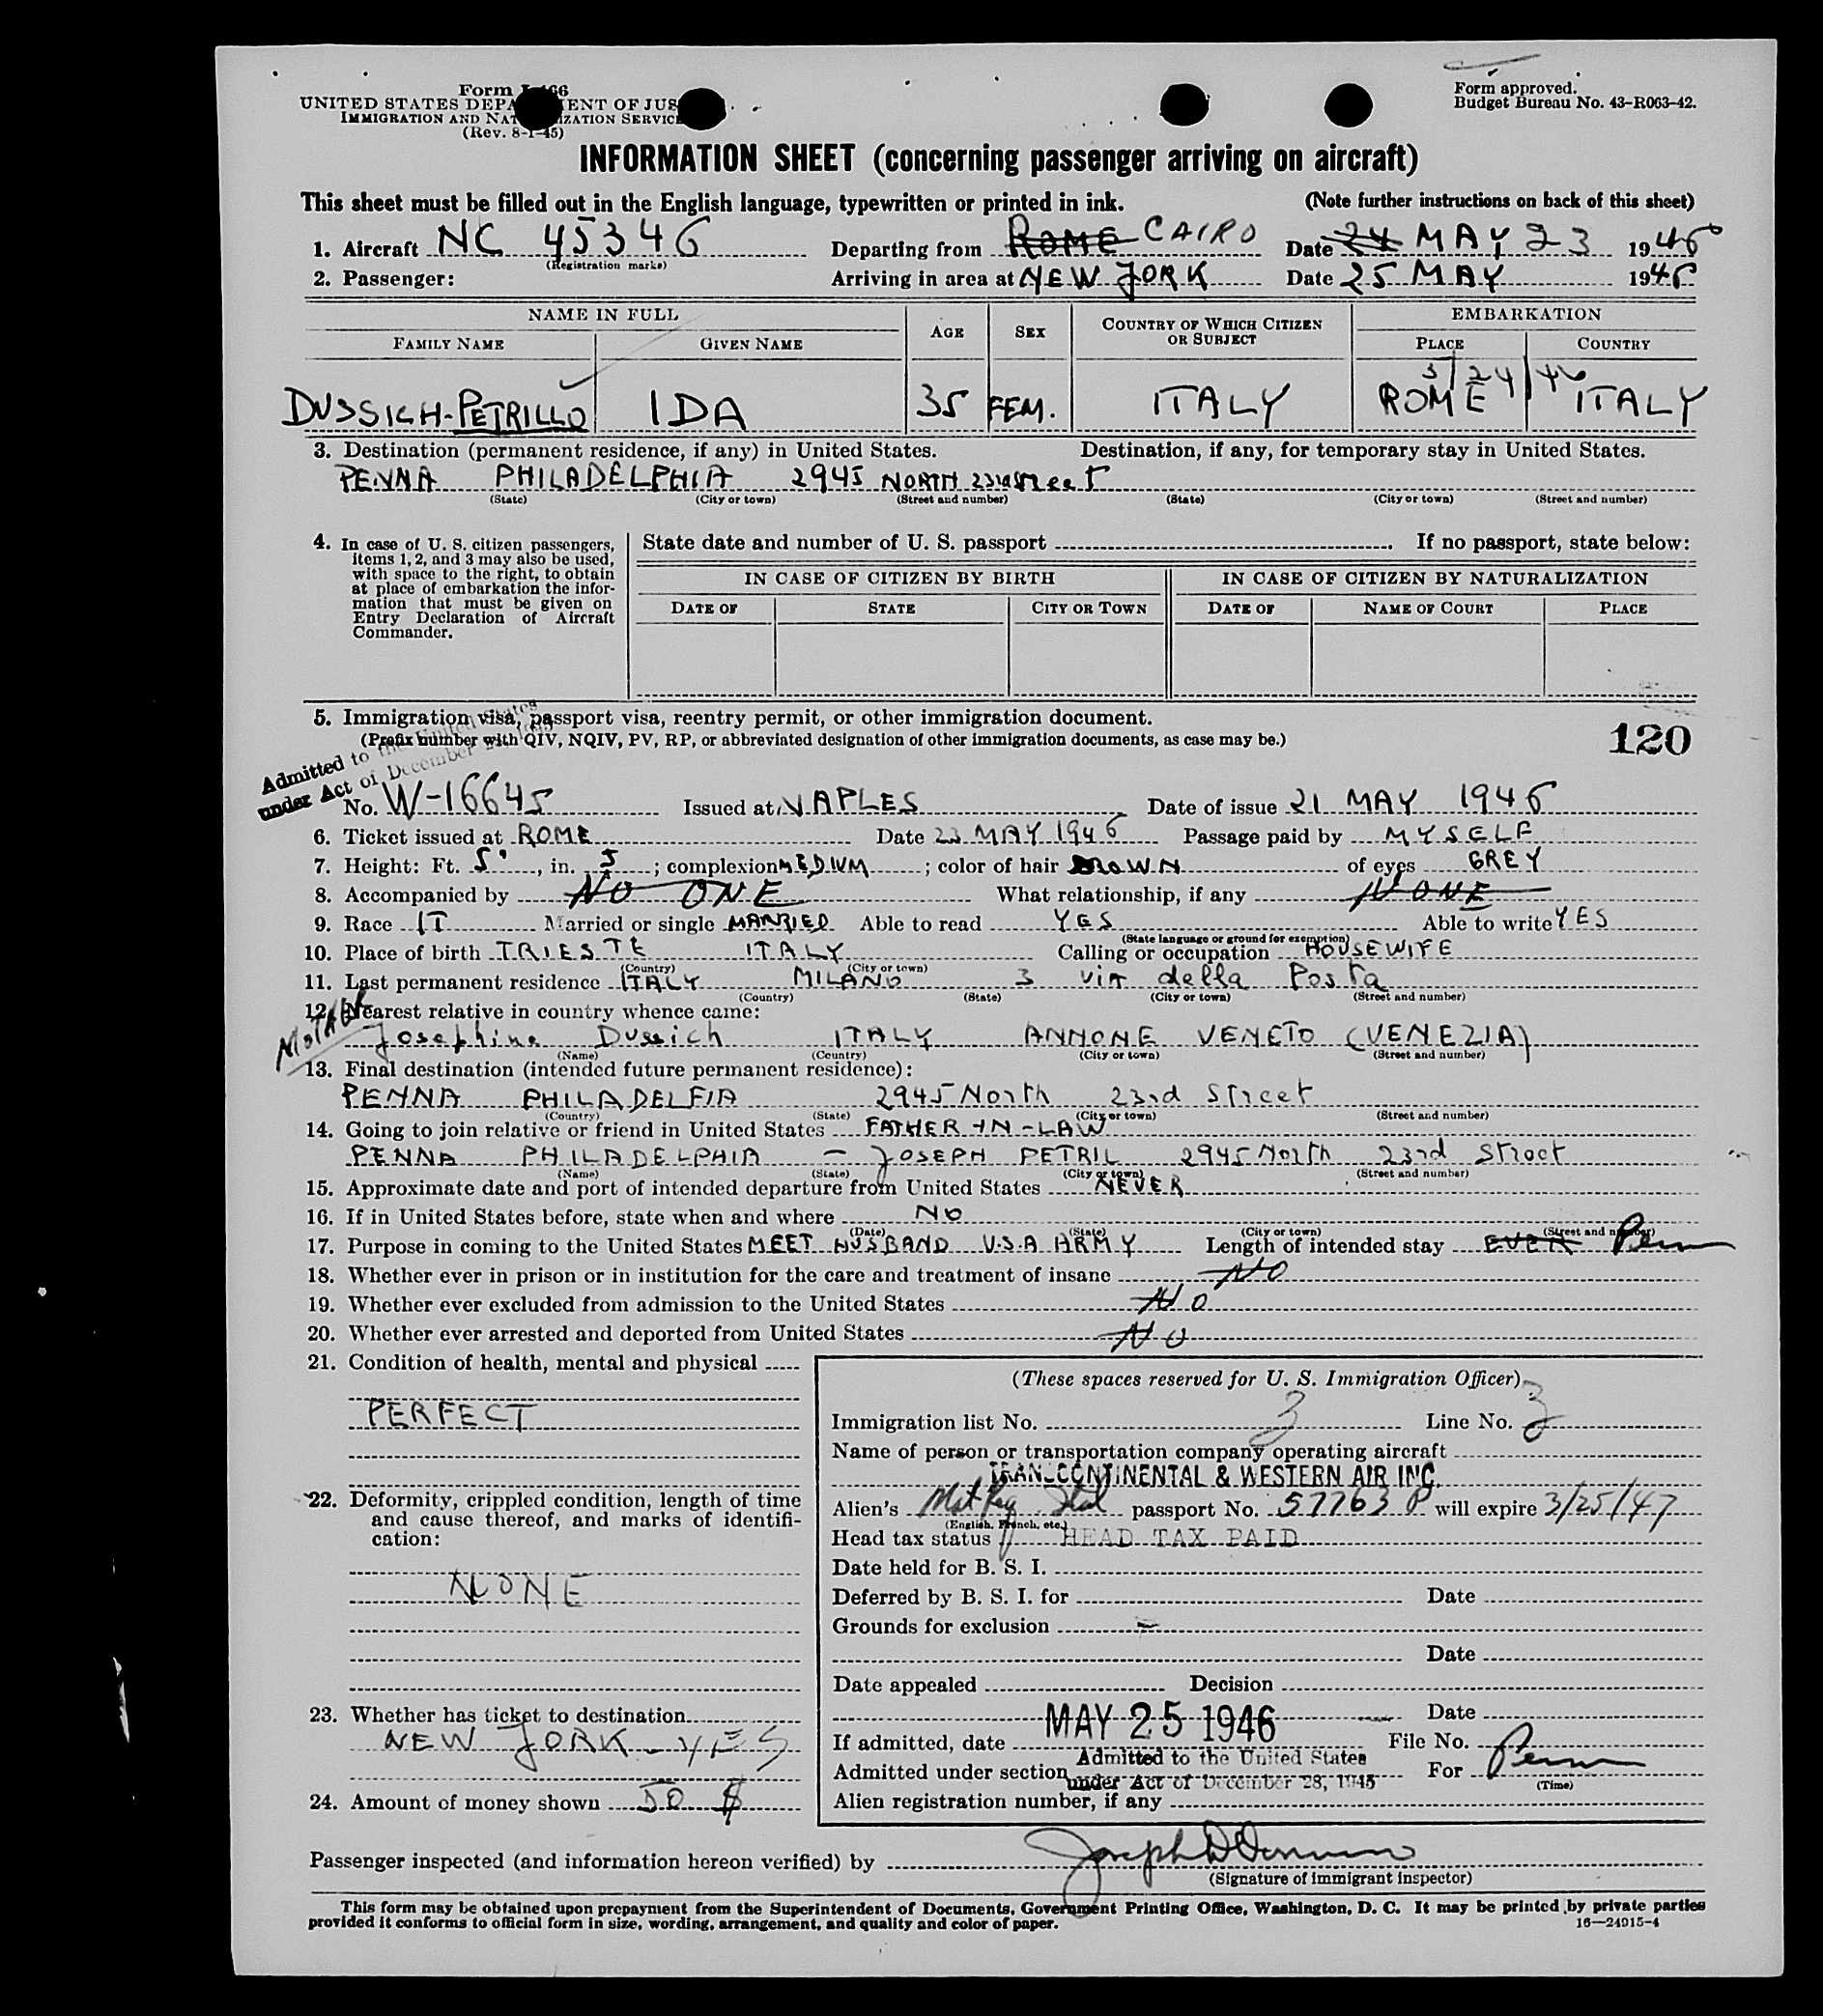 Form I-466
UNITED STATES DEPARTMENT OF JUSTICE
IMMIGRATION AND NATURALIZATION SERVICE
(Rev. 8-1-45)
Form approved.
Budget Bureau No. 43-R063-42.
INFORMATION SHEET (concerning passenger arriving on aircraft)
This sheet must be filled out in the English language, typewritten or printed in ink. (Note further instructions on back of this sheet)
1. Aircraft NC 45346 Departing from ROME CAIRO Date 24 MAY 23 1946
(Registration marks)
2. Passenger: Arriving in area at NEW JORK Date 25 MAY 1946
NAME IN FULL AGE SEX COUNTRY OF WHICH CITIZEN OR SUBJECT EMBARKATION
FAMILY NAME GIVEN NAME PLACE COUNTRY
5/24/46
DUSSICH-PETRILLO IDA 35 FEM. ITALY ROME ITALY
3. Destination (permanent residence, if any) in United States. Destination, if any, for temporary stay in United States.
PENNA PHILADELPHIA 2945 NORTH 23rd street
(State) (City or town) (Street and number) (State) (City or town) (Street and number)
4. In case of U. S. citizen passengers, items 1, 2, and 3 may also be used, with space to the right, to obtain at place of embarkation the information that must be given on Entry Declaration of Aircraft Commander.
State date and number of U. S. passport If no passport, state below:
IN CASE OF CITIZEN BY BIRTH IN CASE OF CITIZEN BY NATURALIZATION
DATE OF STATE CITY OR TOWN DATE OF NAME OF COURT PLACE
5. Immigration visa, passport visa, reentry permit, or other immigration document.
(Prefix number with QIV, NQIV, PV, RP, or abbreviated designation of other immigration documents, as case may be.)
120
Admitted to the United States
under Act of December
No. W-16645 Issued at NAPLES Date of issue 21 MAY 1946
6. Ticket issued at ROME Date 23 MAY 1946 Passage paid by MYSELF
7. Height: Ft. 5', in. 5; complexion MEDIUM; color of hair BROWN of eyes GREY
8. Accompanied by NO ONE What relationship, if any NONE
9. Race IT Married or single MARRIED Able to read YES Able to write YES
(State language or ground for exemption)
10. Place of birth TRIESTE ITALY Calling or occupation HOUSEWIFE
(Country) (City or town)
11. Last permanent residence ITALY MILANO 3 via della Posta
(Country) (State) (City or town) (Street and number)
12. Nearest relative in country whence came:
MOTHER Josephine Dussich ITALY ANNONE VENETO (VENEZIA)
(Name) (Country) (City or town) (Street and number)
13. Final destination (intended future permanent residence):
PENNA PHILADELFIA 2945 North 23rd Street
(Country) (State) (City or town) (Street and number)
14. Going to join relative or friend in United States FATHER-IN-LAW
PENNA PHILADELPHIA - JOSEPH PETRIL 2945 North 23rd Street
(Name) (State) (City or town) (Street and number)
15. Approximate date and port of intended departure from United States NEVER
16. If in United States before, state when and where NO
(Date) (State) (City or town) (Street and number)
17. Purpose in coming to the United States MEET HUSBAND U.S.A ARMY Length of intended stay EVER Perm
18. Whether ever in prison or in institution for the care and treatment of insane NO
19. Whether ever excluded from admission to the United States NO
20. Whether ever arrested and deported from United States NO
21. Condition of health, mental and physical
PERFECT
22. Deformity, crippled condition, length of time and cause thereof, and marks of identification:
NONE
23. Whether has ticket to destination
NEW JORK - YES
24. Amount of money shown 50 $
(These spaces reserved for U. S. Immigration Officer)
Immigration list No. 3 Line No. 3
Name of person or transportation company operating aircraft
TRANSCONTINENTAL & WESTERN AIR INC.
Alien's passport No. 57763 P will expire 3/25/47
(English, French, etc.)
Head tax status HEAD TAX PAID
Date held for B. S. I.
Deferred by B. S. I. for Date
Grounds for exclusion
Date
Date appealed Decision
Date
MAY 25 1946
If admitted, date File No.
Admitted under section Admitted to the United States under Act of December 28, 1945 For Perm
(Time)
Alien registration number, if any
Passenger inspected (and information hereon verified) by
(Signature of immigrant inspector)
This form may be obtained upon prepayment from the Superintendent of Documents, Government Printing Office, Washington, D. C. It may be printed by private parties
provided it conforms to official form in size, wording, arrangement, and quality and color of paper.
16—24915-4